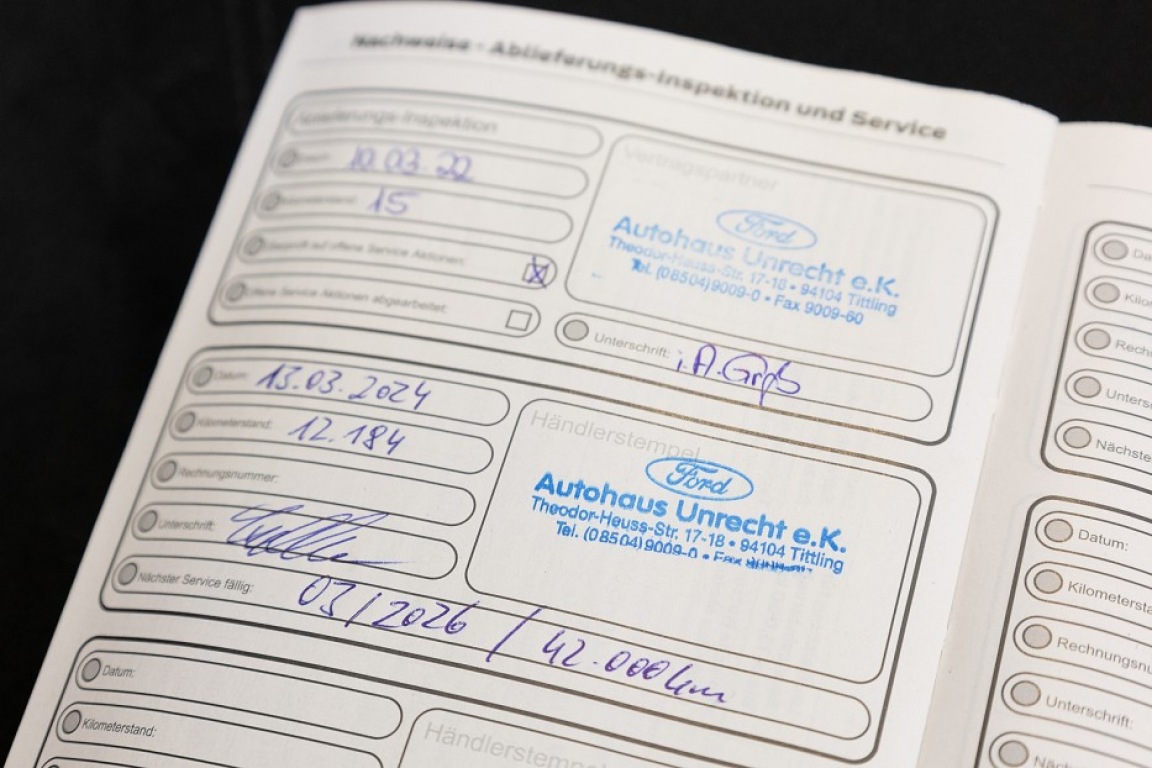 Nachweise - Ablieferungs-Inspektion und Service
Ablieferungs-Inspektion
Datum: 10.03.22
Kilometerstand: 15
Geprüft auf offene Service Aktionen:
Offene Service Aktionen abgearbeitet:
Vertragspartner
Ford
Autohaus Unrecht e.K.
Theodor-Heuss-Str. 17-18 • 94104 Tittling
Tel. (08504) 9009-0 • Fax 9009-60
Unterschrift:
Datum: 13.03.2024
Kilometerstand: 12.184
Rechnungsnummer:
Unterschrift:
Nächster Service fällig: 03/2026 / 42.000 km
Händlerstempel
Ford
Autohaus Unrecht e.K.
Theodor-Heuss-Str. 17-18 • 94104 Tittling
Tel. (08504) 9009-0 • Fax
Datum:
Kilometerstand:
Händlerstempel
Da
Kilo
Rech
Unters
Nächste
Datum:
Kilometersta
Rechnungsnu
Unterschrift:
Näch